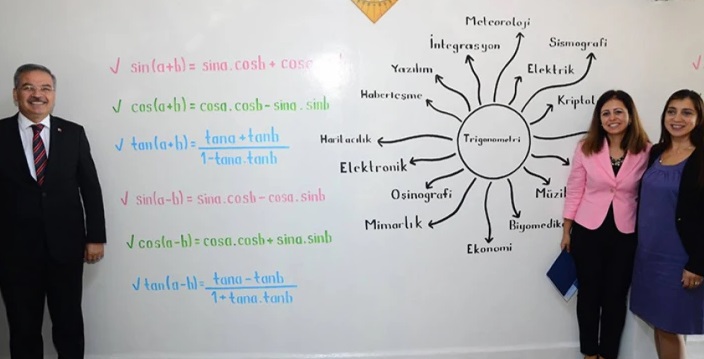 √ sin(a+b) = sina.cosb + cosa
√ cos(a+b) = cosa.cosb - sina.sinb
√ tan(a+b) = tana + tanb
1 - tana.tanb
√ sin(a-b) = sina.cosb - cosa.sinb
√ cos(a-b) = cosa.cosb + sina.sinb
√ tan(a-b) = tana - tanb
1 + tana.tanb
Meteoroloji
İntegrasyon
Sismografi
Yazılım
Elektrik
Haberleşme
Kriptolo
Haritacılık
Trigonometri
Elektronik
Oşinografi
Müzi
Mimarlık
Biyomedik
Ekonomi